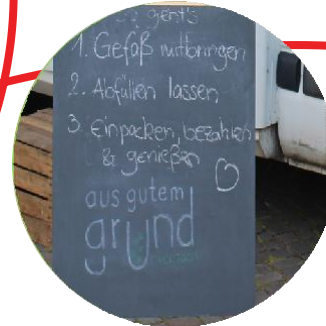 So geht's
1. Gefäß mitbringen
2. Abfüllen lassen
3. Einpacken, bezahlen
& genießen
aus gutem
grund